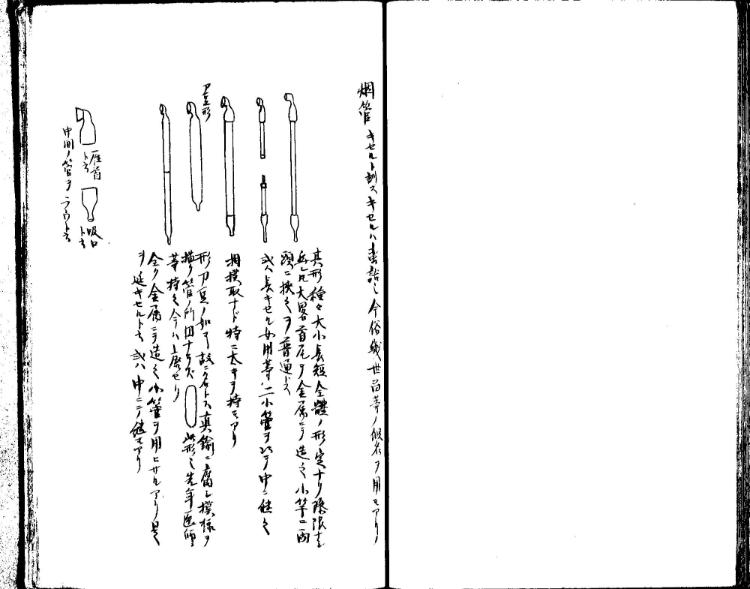 烟管 キセルト訓ス キセルハ蛮語也 今俗幾世留等ノ假名ヲ用モアリ
其形種々大小長短全體ノ形定ナリ際限ナ
大畧首尾ヲ金属ニテ造之小竿ニ両
頭ニ挾ムヲ普通トス
或ハ長キセル女用等ハ二小管ヲ以テ中ニ継之
相撲取ナド特ニ太キヲ持モアリ
刀豆形
形刀豆ノ如シ故ニ名トス真鍮ニ模様ヲ
描ク管ノ所円ナラズ 此形也先年医師
等持之今ハ上廃セリ
全ク金属ニテ造之小管ヲ用ヒサルアリ是
ヲ延キセルト云或ハ中ニテ継モアリ
雁首ト云
吸口ト云
中間ノ管ヲラウト云